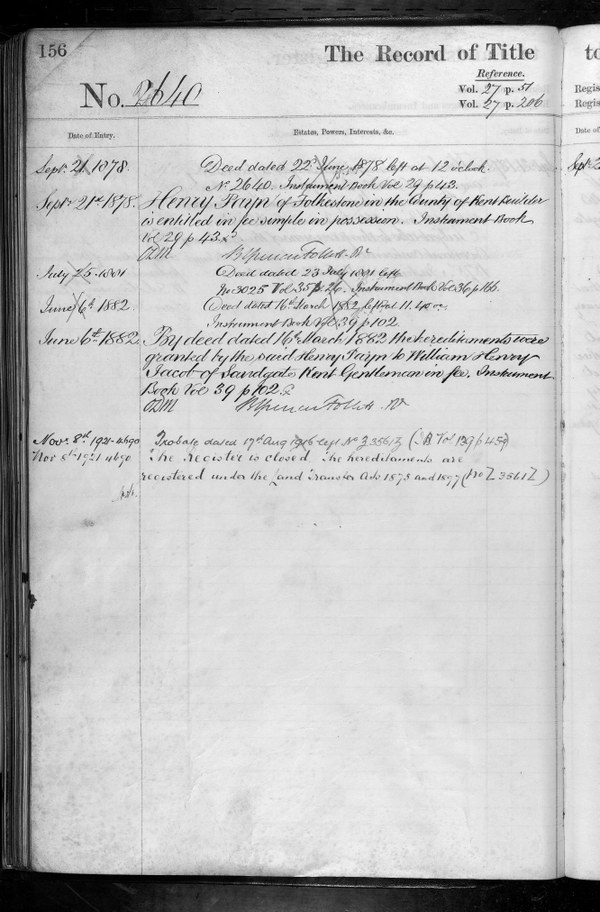 156
The Record of Title
Reference.
No. 2640
Vol. 27 p. 51
Vol. 27 p. 206
Date of Entry.
Estates, Powers, Interests, &c.
Sept. 21 1878.
Deed dated 22d June 1878 left at 12 o'clock
No 2640. Instrument Book Vol 29 p 43.
Sept 21st 1878.
Henry Payn of Folkestone in the County of Kent Builder
is entitled in fee simple in possession. Instrument Book
Vol 29 p 43.
R Spencer Follett Rr
July 25 1881
Deed dated 23 July 1881 left
No 3025 Vol 35 p 26. Instrument Book Vol 36 p 166
June 6th 1882.
Deed dated 16th March 1882 left at 11.40
Instrument Book Vol 39 p 102
June 6th 1882
By deed dated 16th March 1882 the hereditaments were
granted by the said Henry Payn to William Henry
Jacob of Sandgate Kent Gentleman in fee. Instrument
Book Vol 39 p 102
R Spencer Follett Rr
Novr 8th 1921
Probate dated 17th Aug 1916 left No Z 3561Z
Nov 8th 1921
The Register is closed. The hereditaments are
registered under the Land Transfer Acts 1875 and 1897 (No Z 3561Z)
to
Regis
Regis
Date of
Sept 2